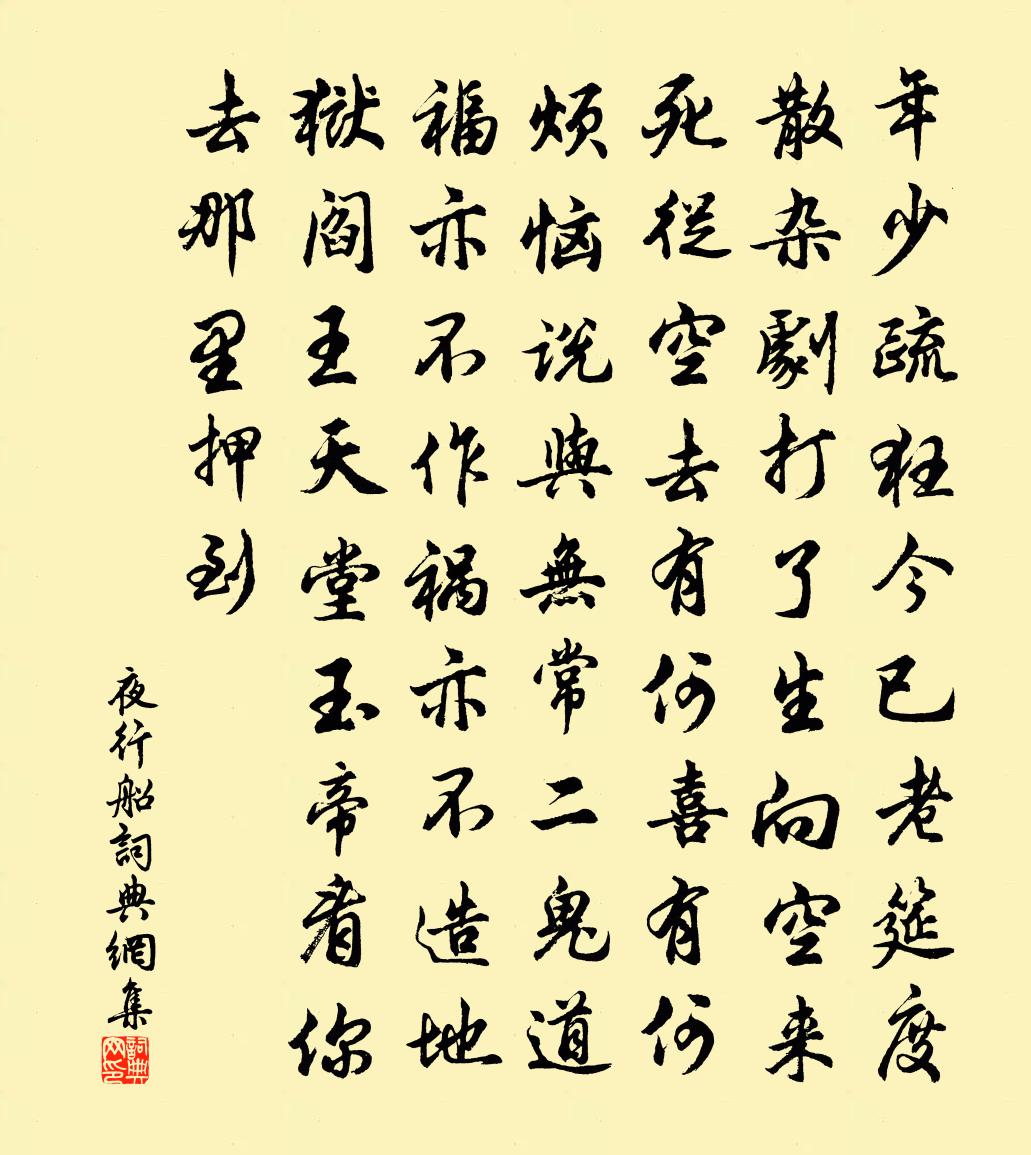 年少疏狂今已老筵度
散杂劇打了生向空来
死從空去有何喜有何
烦恼説與無常二鬼道
福亦不作祸亦不造地
獄阎王天堂玉帝看你
去那里押到
夜行船詞典網集
詞典网印